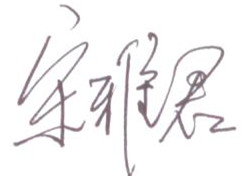 宋雅君